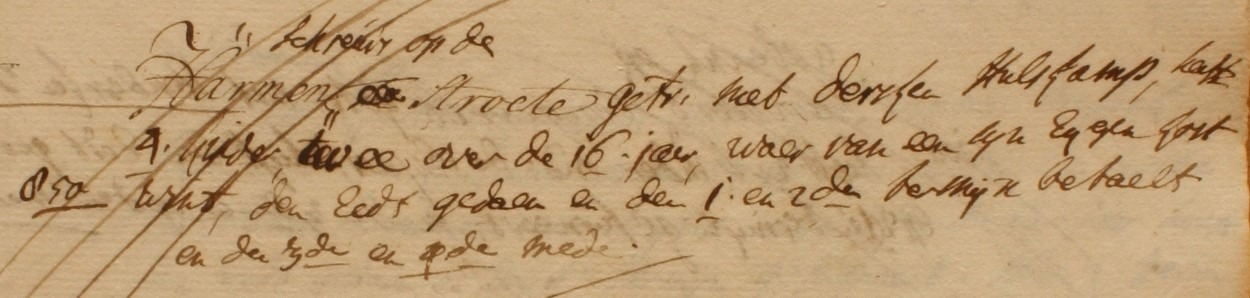 Schreur op de
Harmen Stroete getr. met Dersken Hulskamp, heeft
4. kinder, twee over de 16. jaer, waer van een syn Eygen kost
850 wint, den Eedt gedaen en den 1. en 2den termyn betaelt
en den 3den en 4den mede.